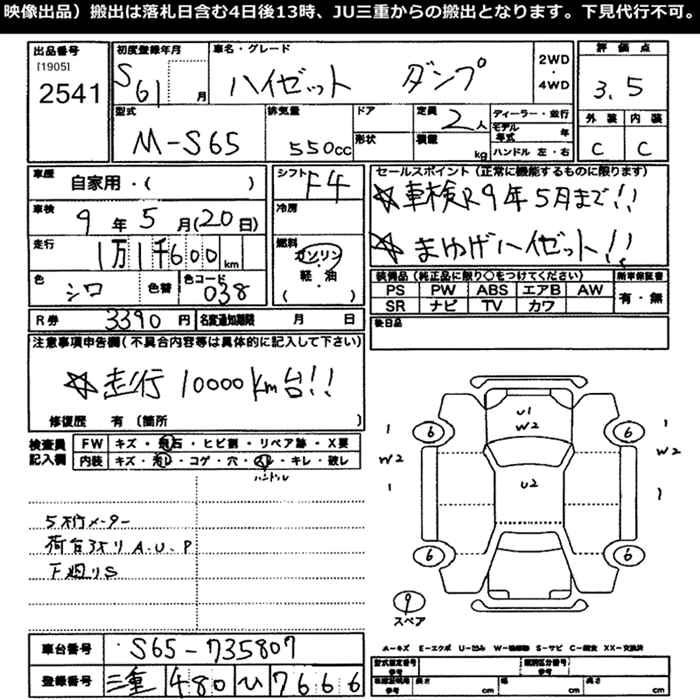 映像出品）搬出は落札日含む4日後13時、JU三重からの搬出となります。下見代行不可。
出品番号 [1905] 2541
初度登録年月 S61 月
車名・グレード ハイゼット ダンプ
2WD ・ 4WD
評価点 3.5
型式 M-S65
排気量 550cc
ドア
形状
定員 2人
積載 kg
ディーラー・並行
モデル年式 年
ハンドル 左・右
外装 内装
C C
車歴 自家用・( )
シフト F4
車検 9年5月(20日)
冷房
走行 1万1千600km
燃料 ガソリン 軽・油 ( )
色 シロ 色替
色コード 038
セールスポイント（正常に機能するものに限ります）
☆車検R9年5月まで!!
☆まゆげハイゼット!!
装備品（純正品に限り○をつけてください） 新車保証書
PS PW ABS エアB AW 有・無
SR ナビ TV カワ
R券 3390円 名変通知期限 月 日
後日品
注意事項申告欄（不具合内容等は具体的に記入して下さい）
☆走行10000km台!!
修復歴 有 〔箇所 〕
検査員記入欄
FW キズ・飛石・ヒビ割・リペア跡・X要
内装 キズ・汚レ・コゲ・穴・スレ・キレ・破レ
ハンドル
5桁メーター
荷台ｽﾐﾘ A.U.P
下廻りS
U1
W2
6 6
1 1
W2 W2
U2
1 1
6 6
9
スペア
車台番号 S65-735807
A-キズ E-エクボ U-凹み W-補修跡 S-サビ C-腐食 XX-交換済
登録番号 三重 480 ひ 7666
型式指定番号 参考
類別区分番号 参考
車輌諸規格 参考 長さ cm 幅 cm 高さ cm